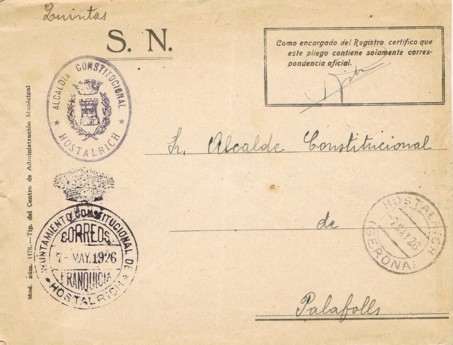 Quintas
S. N.
Como encargado del Registro, certifico que
este pliego contiene solamente corres-
pondencia oficial.
ALCALDIA CONSTITUCIONAL
HOSTALRICH
Sr. Alcalde Constitucional
de
Palafolls
AYUNTAMIENTO CONSTITUCIONAL DE
CORREOS
7-MAY.1926
FRANQUICIA
HOSTALRICH
HOSTALRICH
(GERONA)
Mod. núm. 1178.—Tip. del Centro de Administración Municipal